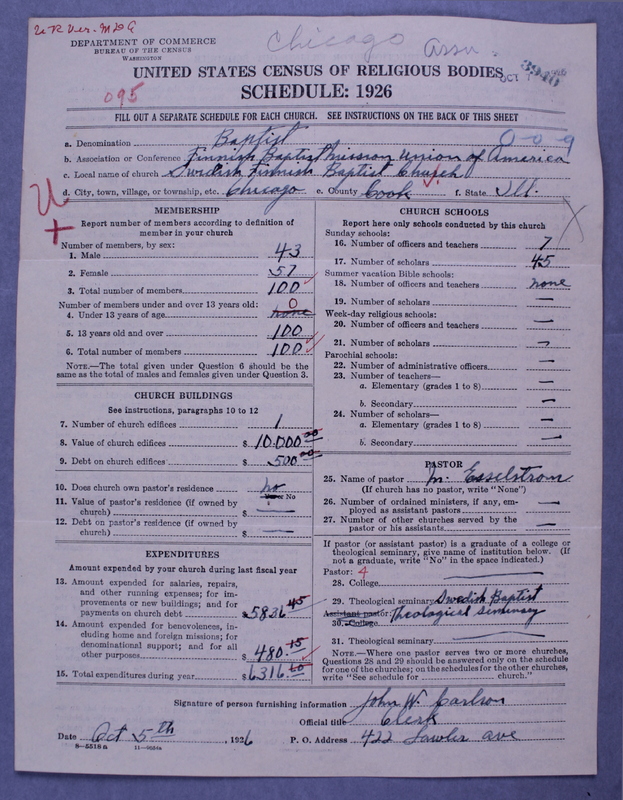 U R Ver. M L G
DEPARTMENT OF COMMERCE
BUREAU OF THE CENSUS
WASHINGTON
Chicago Assn.
UNITED STATES CENSUS OF RELIGIOUS BODIES
OCT
3940
095
SCHEDULE: 1926
FILL OUT A SEPARATE SCHEDULE FOR EACH CHURCH. SEE INSTRUCTIONS ON THE BACK OF THIS SHEET
0-0-9
a. Denomination Baptist
b. Association or Conference Finnish Baptist Mission Union of America
c. Local name of church Swedish Finnish Baptist Church
d. City, town, village, or township, etc. Chicago e. County Cook f. State Ill.
U
+
MEMBERSHIP
Report number of members according to definition of member in your church
Number of members, by sex:
1. Male 43
2. Female 57
3. Total number of members 100
Number of members under and over 13 years old:
4. Under 13 years of age none 0
5. 13 years old and over 100
6. Total number of members 100
NOTE.—The total given under Question 6 should be
same as the total of males and females given under Question 3.
CHURCH BUILDINGS
See instructions, paragraphs 10 to 12
7. Number of church edifices 1
8. Value of church edifices $ 10.000 00
9. Debt on church edifices $ 500 00
10. Does church own pastor's residence no
Yes or No
11. Value of pastor's residence (if owned by
church) $ —
12. Debt on pastor's residence (if owned by
church) $ —
EXPENDITURES
Amount expended by your church during last fiscal year
13. Amount expended for salaries, repairs,
and other running expenses; for im-
provements or new buildings; and for
payments on church debt $ 5836 45
14. Amount expended for benevolences, in-
cluding home and foreign missions; for
denominational support; and for all
other purposes $ 480.15
15. Total expenditures during year $ 6316.60
CHURCH SCHOOLS
Report here only schools conducted by this church
Sunday schools:
16. Number of officers and teachers 7
17. Number of scholars 45
Summer vacation Bible schools:
18. Number of officers and teachers none
19. Number of scholars —
Week-day religious schools:
20. Number of officers and teachers —
21. Number of scholars —
Parochial schools:
22. Number of administrative officers —
23. Number of teachers—
a. Elementary (grades 1 to 8) —
b. Secondary —
24. Number of scholars—
a. Elementary (grades 1 to 8) —
b. Secondary —
PASTOR
25. Name of pastor M. Esselstrom
(If church has no pastor, write "None")
26. Number of ordained ministers, if any, em-
ployed as assistant pastors —
27. Number of other churches served by the
pastor or his assistants —
If pastor (or assistant pastor) is a graduate of a college or
theological seminary, give name of institution below. (If
not a graduate, write "No" in the space indicated.)
Pastor: 4
28. College —
29. Theological seminary Swedish Baptist
Assistant pastor: Theological Seminary
30. College
31. Theological seminary —
NOTE.—Where one pastor serves two or more churches,
Questions 28 and 29 should be answered only on the schedule
for one of the churches; on the schedules for the other churches,
write "See schedule for church."
Signature of person furnishing information John W. Carlson
Official title Clerk
Date Oct 5th, 1926 P. O. Address 422 Lawler ave
8—5518 a